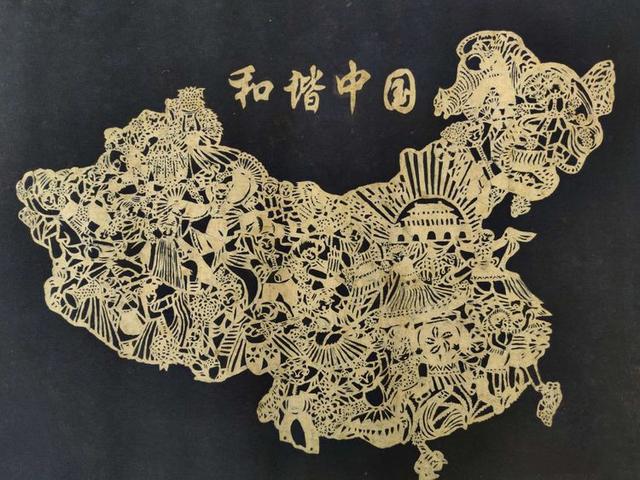 和谐中国